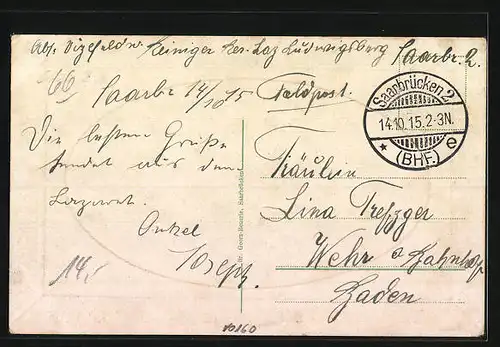 Abs. Vizefeldw. Reiniger Res. Laz Ludwigsberg Saarbr. 2.
60
Saarbr 14/10 15
Feldpost.
Saarbrücken 2
14.10.15.2-3N.
* e
(BHF.)
Die besten Grüße
sendet aus dem
Lazaret.
Onkel
Joseph.
14.
Fräulein
Lina Trefzger
Wehr a Bahnhof
Baden
10160